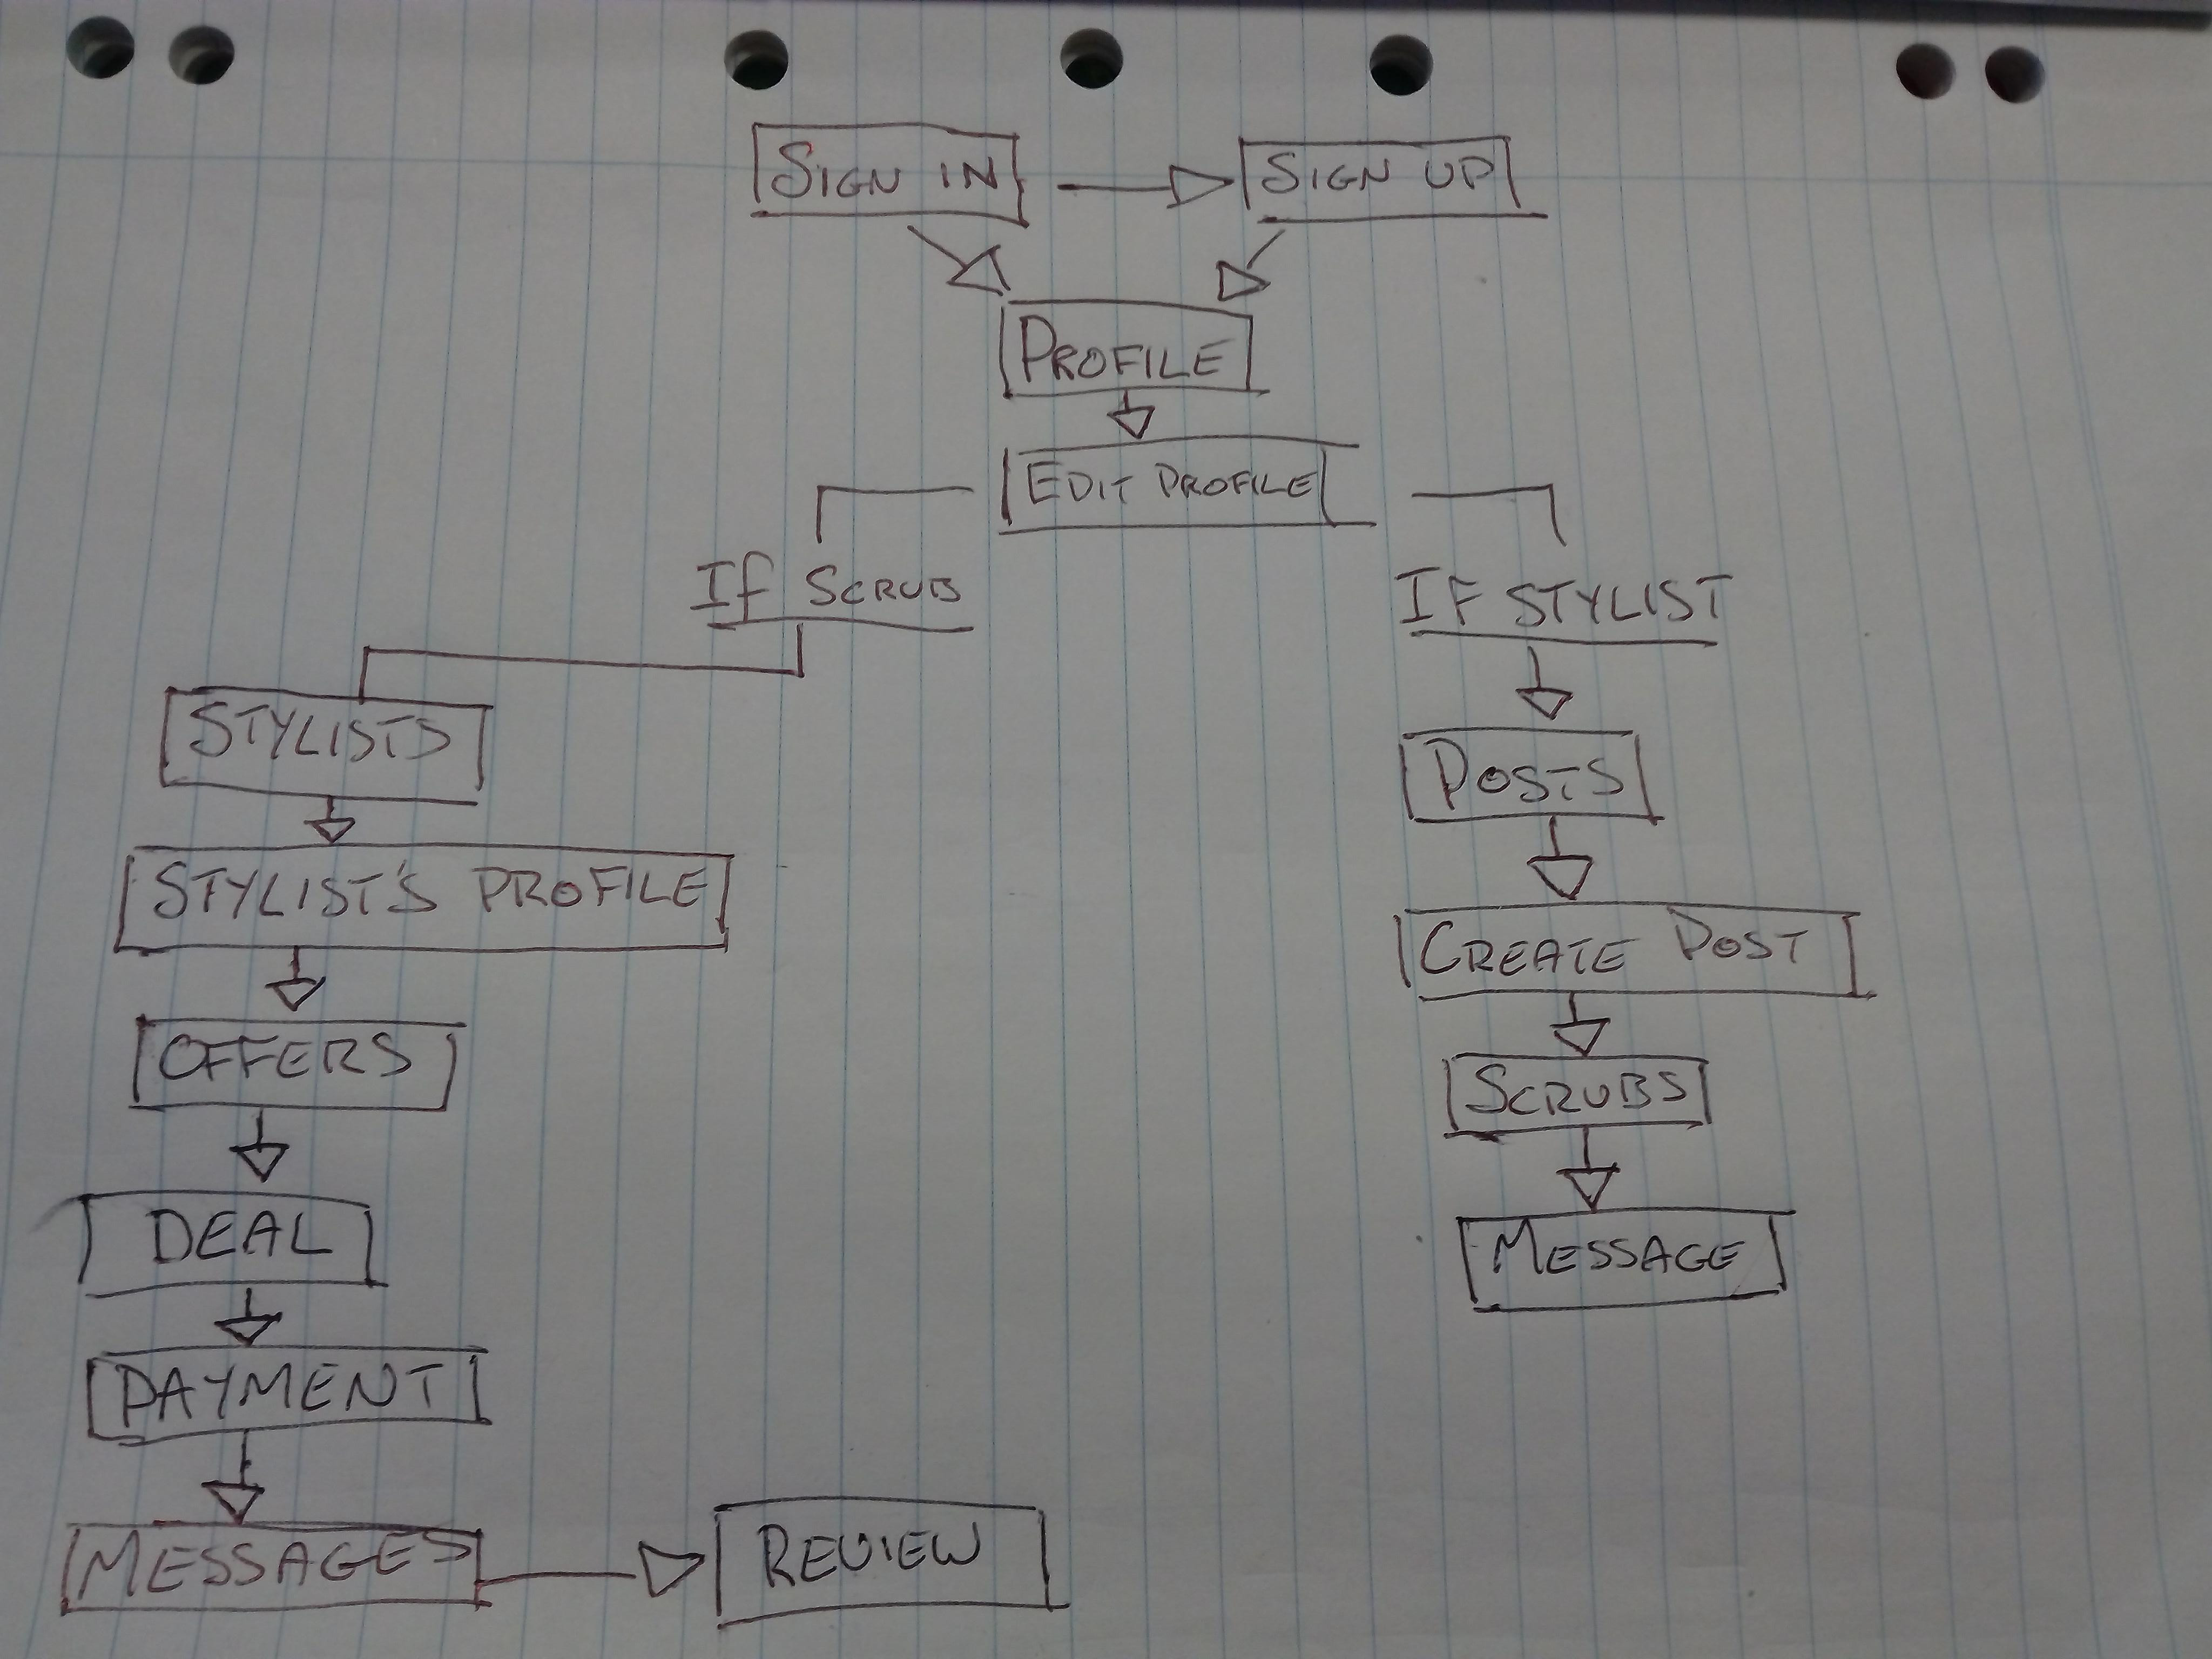 SIGN IN
SIGN UP
PROFILE
EDIT PROFILE
If SCRUB
IF STYLIST
STYLISTS
STYLIST'S PROFILE
OFFERS
DEAL
PAYMENT
MESSAGES
REVIEW
POSTS
CREATE POST
SCRUBS
MESSAGE